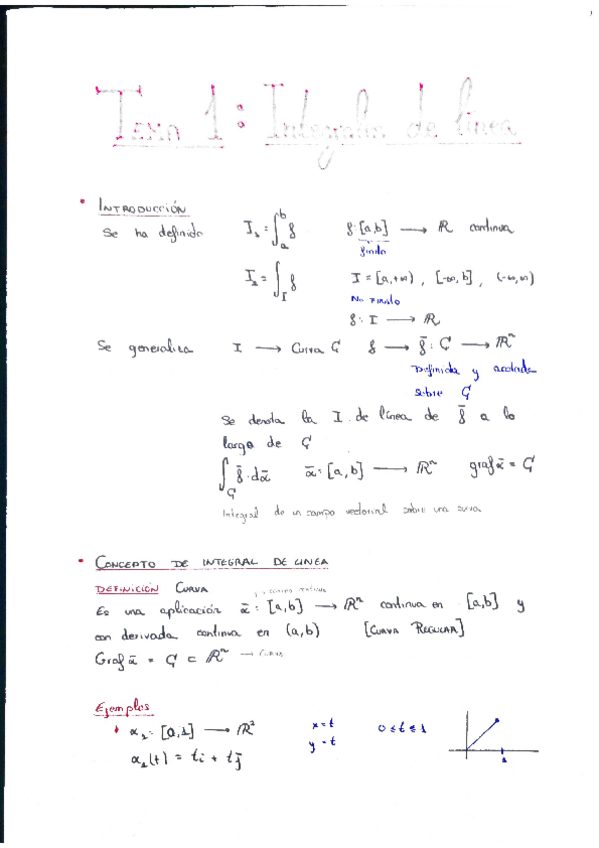 Tema 1: Integrales de línea
• INTRODUCCIÓN
Se ha definido I₁ = ∫ₐᵇ f f: [a,b] → ℝ continua
finito
I₂ = ∫_I f I = [a,+∞), [-∞,b], (-∞,∞)
No finito
f: I → ℝ
Se generaliza I → Curva G f → f̄: G → ℝⁿ
Definida y acotada
sobre G
Se denota la I. de línea de f̄ a lo
largo de G
∫_G f̄·dᾱ ᾱ: [a,b] → ℝⁿ graf ᾱ = G
Integral de un campo vectorial sobre una curva
• CONCEPTO DE INTEGRAL DE LINEA
DEFINICIÓN CURVA
Es una aplicación ᾱ: [a,b] → ℝⁿ continua en [a,b] y
con derivada continua en (a,b) [CURVA REGULAR]
Graf ᾱ = G ⊂ ℝⁿ → CURVA
Ejemplos
α₁: [0,1] → ℝ² x=t 0≤t≤1
y=t
α₁(t) = ti + tj
1